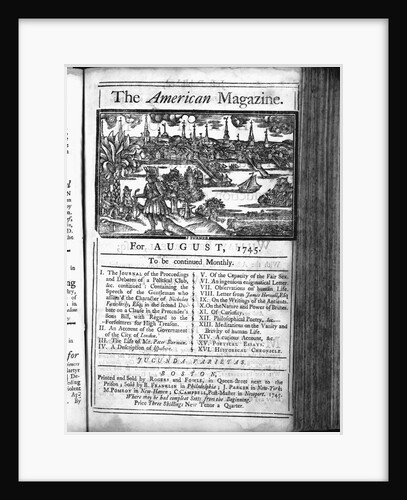 The American Magazine.
For AUGUST, 1745.
To be continued Monthly.
I. The JOURNAL of the Proceedings
and Debates of a Political Club,
&c. continued: Containing the
Speech of the Gentleman who
assum'd the Character of Nicholas
in the second De-
bate on a Clause in the Pretender's
Sons Bill, with Regard to the
Forfeitures for High Treason.
II. An Account of the Government
of the City of London.
III. The Life of Mr. Peter
IV. A Description of
V. Of the Capacity of the Fair Sex.
VI. An ingenious enigmatical Letter.
VII. Observations on human Life.
VIII. Letter from James Howell, Esq;
IX. On the Writings of the Antients.
X. On the Nature and Power of Brutes.
XI. Of Curiosity.
XII. Philosophical Poetry, &c.
XIII. Meditations on the Vanity and
Brevity of human Life.
XIV. A curious Account, &c.
XV. POETICAL ESSAYS.
XVI. HISTORICAL CHRONICLE.
JUCUNDA VARIETAS.
BOSTON,
Printed and Sold by ROGERS and FOWLE, in Queen-street next to the
Prison; Sold by B. FRANKLIN in Philadelphia; J. PARKER in New-York;
M. POMROY in New-Haven; C. CAMPBELL, Post-Master in Newport. 1745.
Where they be had compleat Setts from the Beginning.
Price Three Shillings New Tenor a Quarter.